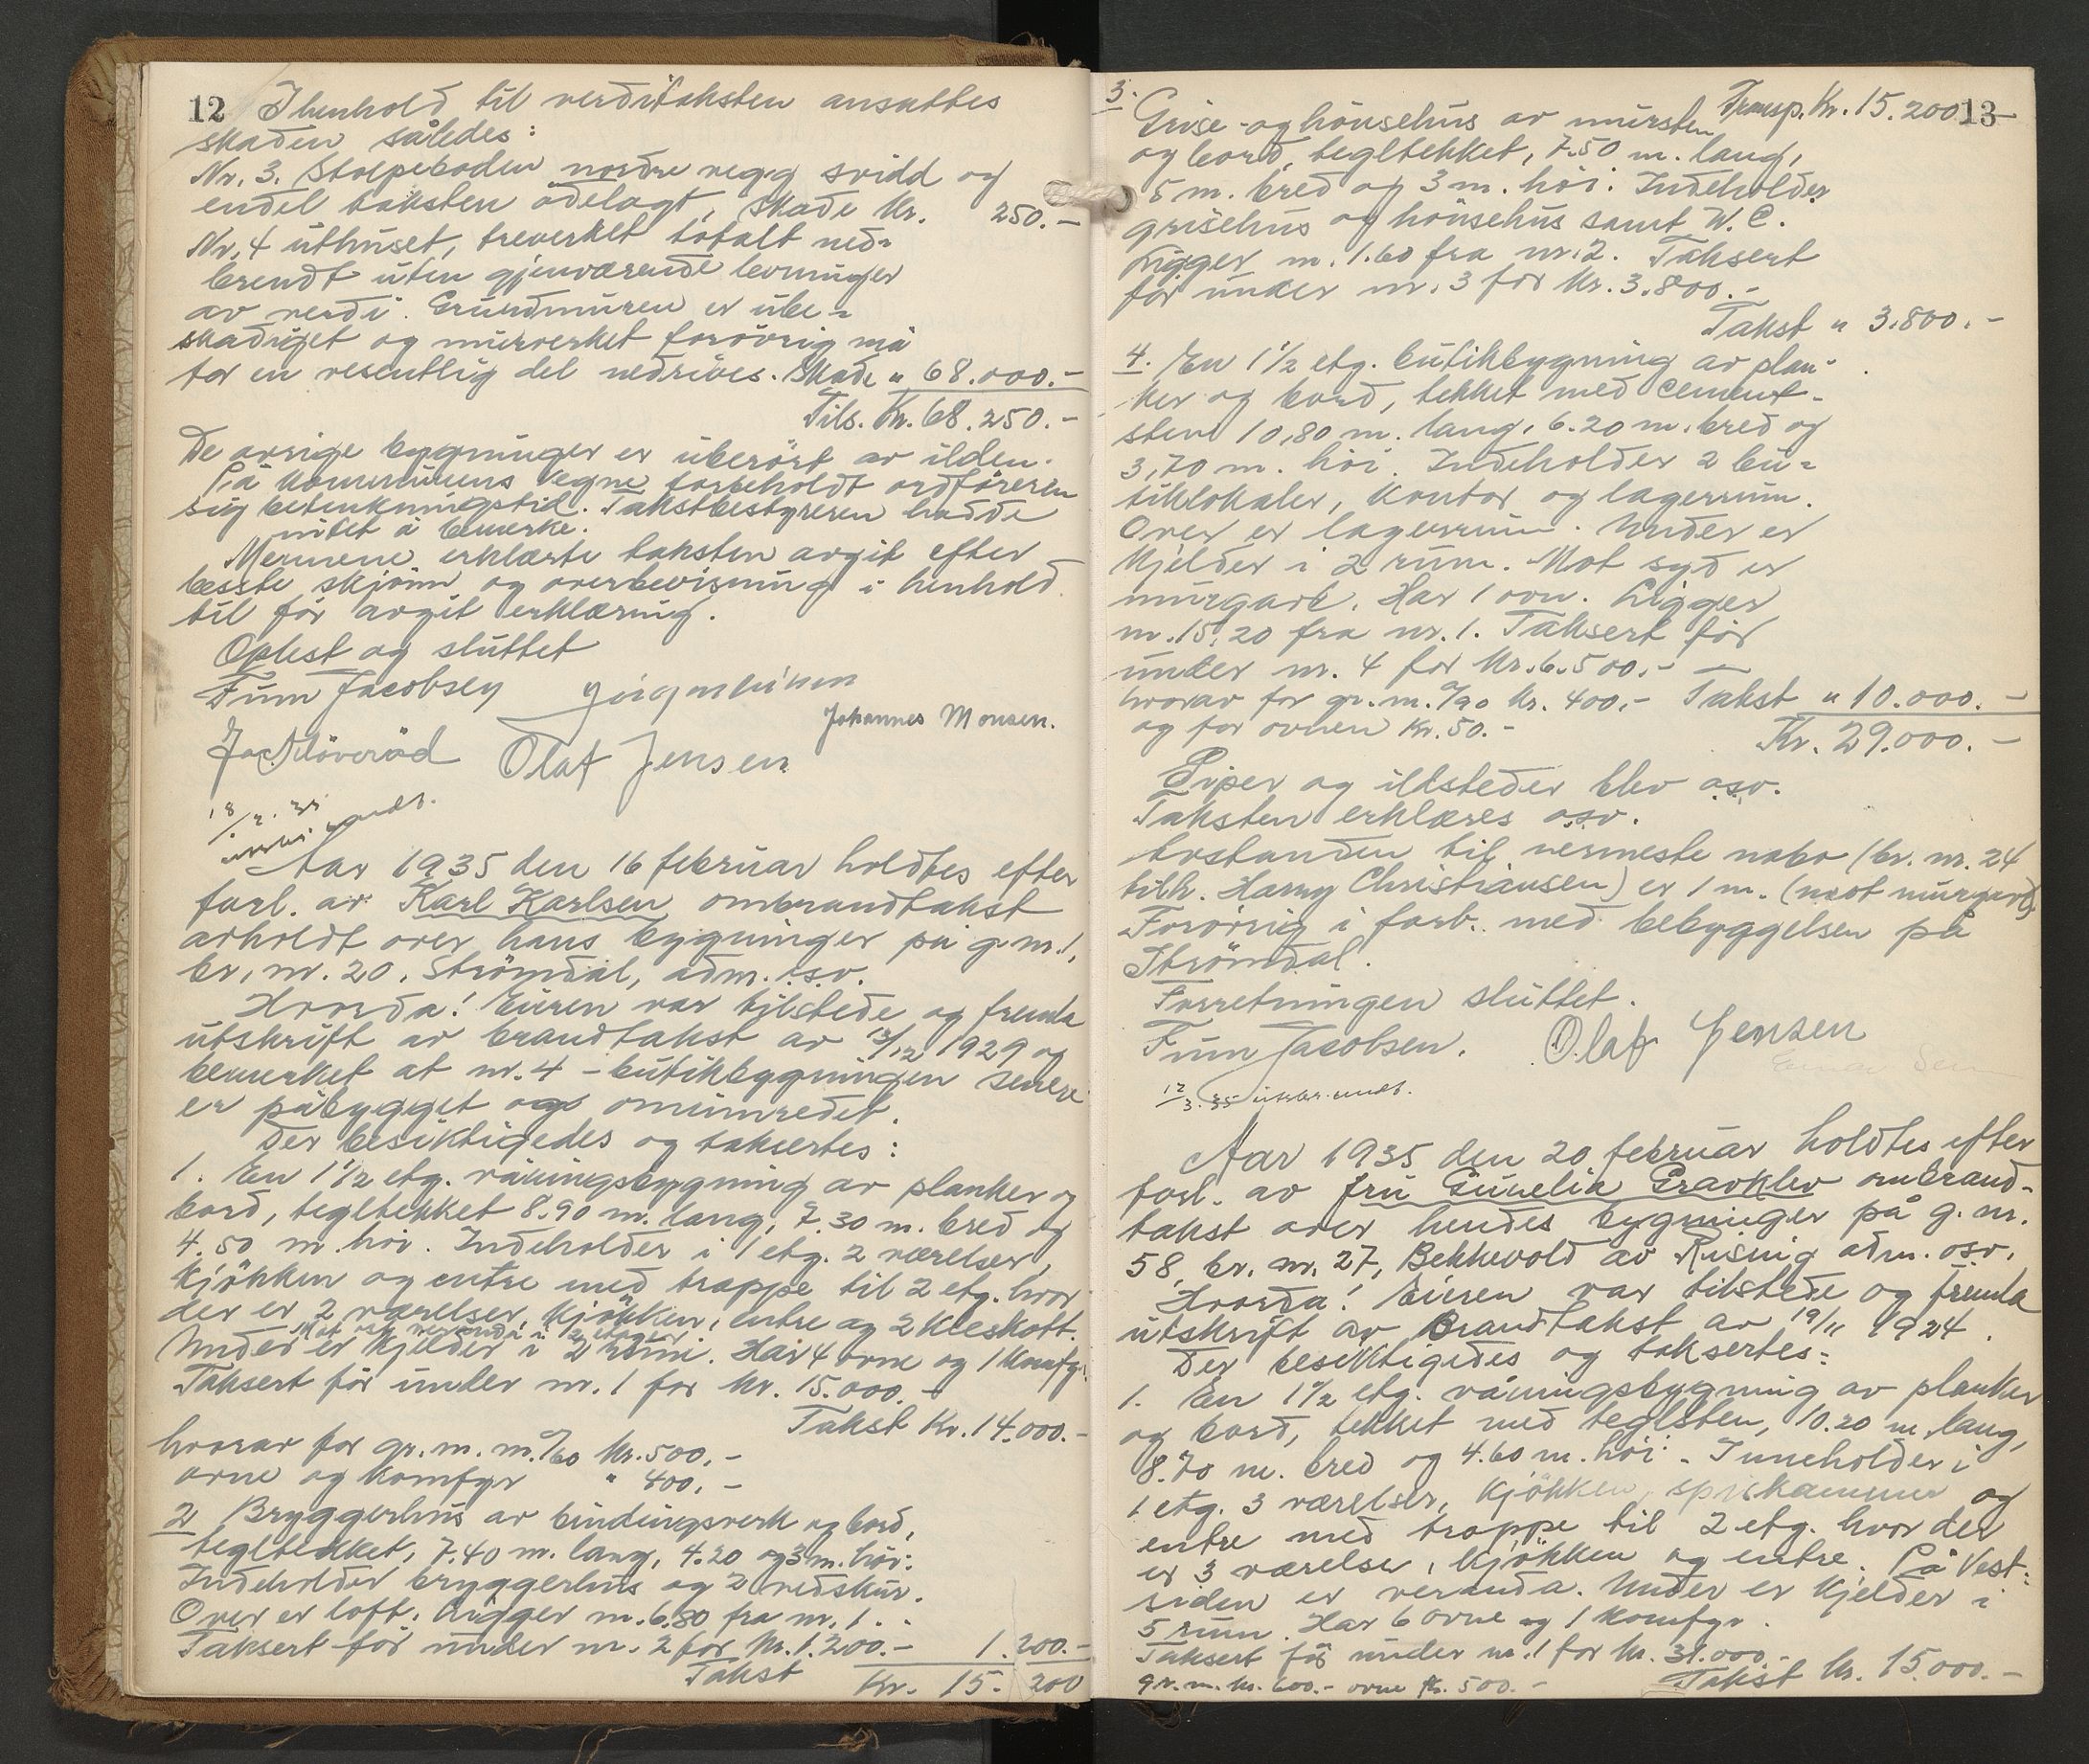 12 I henhold til verditaksten ansattes
skaden således:
Nr. 3. Stolpeboden nordre vegg svidd og
endel taksten ödelagt, skade Kr. 250.-
Nr. 4 uthuset, treverket totalt ned-
brendt uten gjenværende levninger
av verdi. Grundmuren er ube-
skadiget og murverket forövrig må
for en vesentlig del nedrives. Skade " 68.000.-
Tils. Kr. 68.250.-
De övrige bygninger er uberört av ilden.
På kommunens vegne forbeholdt ordföreren
sig betenkningstid. Takstbestyreren hadde
intet å bemerke.
Mennene erklærte taksten avgit efter
beste skjönn og overbevisning i henhold
til för avgit erklæring.
Oplest og sluttet
Finn Jacobsen
Johannes Monsen.
Olaf Jensen
Aar 1935 den 16 februar holdtes efter
forl. av Karl Karlsen ombrandtakst
avholdt over hans bygninger på g.nr. 1,
br. nr. 20, Strömdal, adm. osv.
Hvorda! Eieren var tilstede og fremla
utskrift av brandtakst av 13/12 1929 og
bemerket at nr. 4 - butikbygningen senere
er påbygget og ominnredet.
Der besiktigedes og taksertes:
1. En 1 1/2 etg. våningsbygning av planker og
bord, tegltekket 8.90 m. lang, 7.30 m. bred og
4.50 m. höi. Indeholder i 1 etg. 2 værelser,
kjökken og entre med trappe til 2 etg. hvor
der er 2 værelser, kjökken, entre og 2 kleskott.
Mot veranda i 2 etager
Under er kjelder i 2 rum. Har 4 ovne og 1 komfyr.
Taksert för under nr. 1 for kr. 15.000.-
Takst Kr. 14.000.-
hvorav for gr. m. m. a/60 kr. 500.-
ovne og komfyr " 400.-
2 Bryggerhus av bindingsverk og bord,
tegltekket, 7.40 m. lang, 4.20 og 3 m. höi.
Indeholder bryggerhus og 2 vedskur.
Over er loft. Ligger m. 6.80 fra nr. 1.
Taksert för under nr. 2 for kr. 1.200.- 1.200.-
Takst Kr. 15.200
3. Transp. Kr. 15.200 13
Grise- og hönsehus av mursten
og bord, tegltekket, 7.50 m. lang,
5 m. bred og 3 m. höi. Indeholder
grisehus og hönsehus samt W.C.
Ligger m. 1.60 fra nr. 2. Taksert
för under nr. 3 for kr. 3.800.-
Takst " 3.800.-
4. En 1 1/2 etg. butikbygning av plan-
ker og bord, tekket med cement-
sten 10,80 m. lang, 6.20 m. bred og
3,70 m. höi. Indeholder 2 bu-
tiklokaler, kontor og lagerrum.
Over er lagerrum. Under er
kjelder i 2 rum. Mot syd er
murgavl. Har 1 ovn. Ligger
m. 15,20 fra nr. 1. Taksert för
under nr. 4 for kr. 6.500.-
hvorav for gr. m. a/90 kr. 400.- Takst " 10.000.-
og for ovnen kr. 50.- Kr. 29.000.-
Piper og ildsteder blev osv.
Taksten erklæres osv.
Avstanden til nermeste nabo (br. nr. 24
tilh. Harry Christiansen) er 1 m. (mot murgavl).
Forövrig i forb. med bebyggelsen på
Strömdal.
Forretningen sluttet.
Finn Jacobsen. Olaf Jensen
12/3.35 innber. sendt.
Aar 1935 den 20 februar holdtes efter
forl. av fru Gunelia Gravklev ombrand-
takst over hendes bygninger på g. nr.
58, br. nr. 27, Bekkevold av Rising adm. osv.
Hvorda! Eieren var tilstede og fremla
utskrift av brandtakst av 19/11 1924.
Der besiktigedes og taksertes:
1. En 1 1/2 etg. våningsbygning av planker
og bord, tekket med teglsten, 10.20 m. lang,
8.70 m. bred og 4.60 m. höi. Inneholder i
1 etg. 3 værelser, kjökken, spiskammer og
entre med trappe til 2 etg. hvor der
er 3 værelser, kjökken og entre. På Vest-
siden er veranda. Under er kjelder i
5 rum. Har 6 ovne og 1 komfyr.
Taksert för under nr. 1 for kr. 31.000.-
gr. m. kr. 600.- ovne kr. 500.- Takst kr. 15.000.-